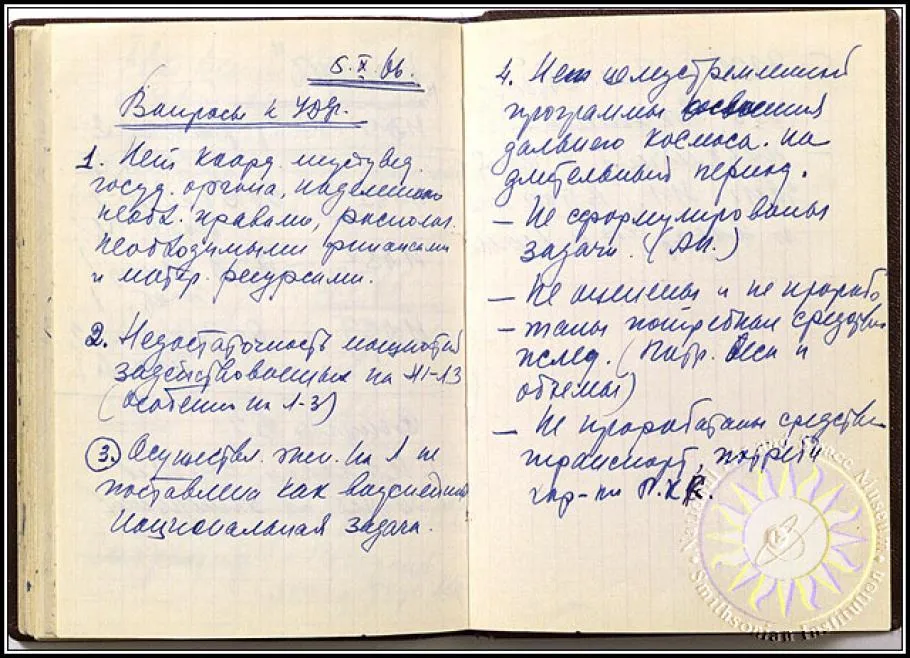 5.X 66.
Вопросы к УДФ.
1. Нет коорд. межвед.
госуд. органа, наделенного
необх. правами, располаг.
необходимыми финансами
и матер. ресурсами.
2. Недостаточность мощностей
задействованных на Н1-Л3
(особенно на Л-3)
3. Осуществл. эксп. на Л не
поставлена как важнейшая
национальная задача.
4. Нет целеустремленной
программы освоения
дальнего космоса. на
длительный период.
– Не сформулированы
задачи. (АН.)
– Не оценены и не прорабо
– таны потребные средства
послед. (Потр. веса и
объемы)
– Не проработаны средства
транспорт, потреб
хар-ки Р.К.К.
National Air and Space Museum
Smithsonian Institution